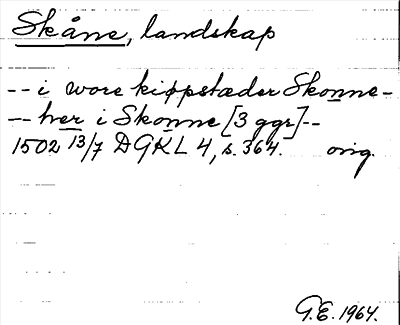 Skåne, landskap
-- i wore kiøpstæder Skonne -
-- her i Skonne [3 ggr] --
1502 13/7 DGKL 4, s. 364. orig.
G.E. 1964.